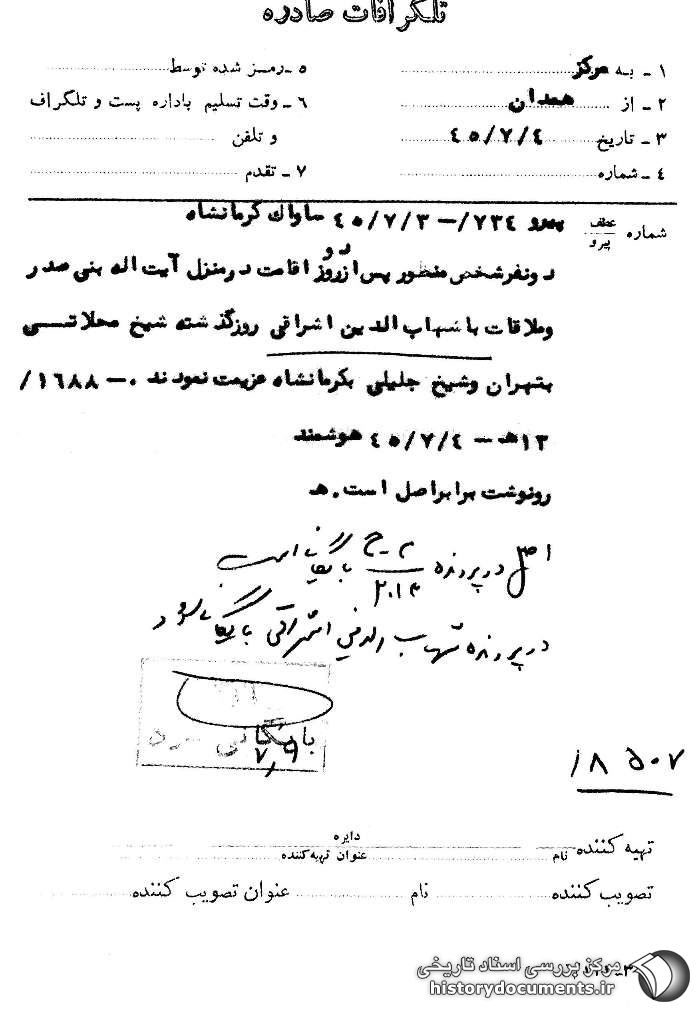 تلگرافات صادره
۱ - به مرکز
۲ - از همدان
۳ - تاریخ ۴۵/۷/۴
۴ - شماره
۵ - رمز شده توسط
۶ - وقت تسلیم باداره پست و تلگراف
و تلفن
۷ - تقدم
شماره عطف پیرو پیرو ۷۳۴/- ۴۵/۷/۳ ساواك کرمانشاه
دو
دونفرشخص منظور پس ازروز اقامت درمنزل آیت اله بنی صدر
وملاقات با شهاب الدین اشراقی روزگذشته شیخ محلاتی
بتهران وشیخ جلیلی بکرمانشاه عزیمت نمودند ۰-۱۶۸۸/
۱۳هـ - ۴۵/۷/۴ هوشمند
رونوشت برابراصل است . هـ
اصل در پرونده ۲۰۱۴ بایگانی است
در پرونده شهاب الدین اشراقی بایگانی شود
بایگانی
۷/۹
۱۸۵۰۷
تهیه کننده نام دایره عنوان تهیه کننده
تصویب کننده نام عنوان تصویب کننده
مرکز بررسی اسناد تاریخی
historydocuments.ir